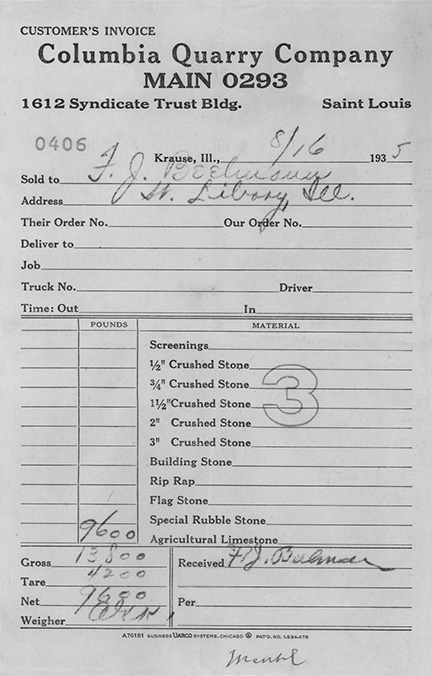 CUSTOMER'S INVOICE
Columbia Quarry Company
MAIN 0293
1612 Syndicate Trust Bldg. Saint Louis
0406 Krause, Ill., 8/16 1935
Sold to F. J. Beelman
Address St. Libory, Ill.
Their Order No. Our Order No.
Deliver to
Job
Truck No. Driver
Time: Out In
POUNDS MATERIAL
Screenings
½" Crushed Stone
¾" Crushed Stone
1½" Crushed Stone
2" Crushed Stone
3" Crushed Stone
3
Building Stone
Rip Rap
Flag Stone
Special Rubble Stone
9600 Agricultural Limestone
Gross 13800 Received F. J. Beelman
Tare 4200
Net 9600 Per
Weigher
A76181 BUSINESS UARCO SYSTEMS, CHICAGO PAT'D. NO. 1-534-478